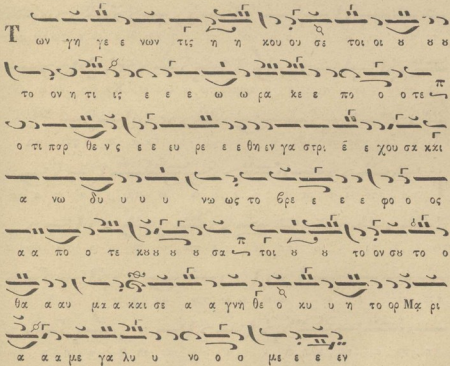 Τ ων γη γε ε νων τις η η κου ου σε τοι οι ȣ ȣ ȣ
το ον η τι ις ε ε ε ω ω ρα κε ε πο ο ο τε π
ο τι παρ θε νς ε ε υ ρε ε ε θη εν γα στρι ε ε χου σα και
α νω δυ υ υ υ νω ως το βρε ε ε ε φο ο ος
α α πο ο τε κȣ ȣ ȣ ȣ σα π τοι ȣ ȣ το ον σȣ το ο
θα α αυ μα α και σε α α γνη θε ο κυ υ η το ορ Μα ρι
α α α με γα λυ υ νο ο ο με ε ε εν